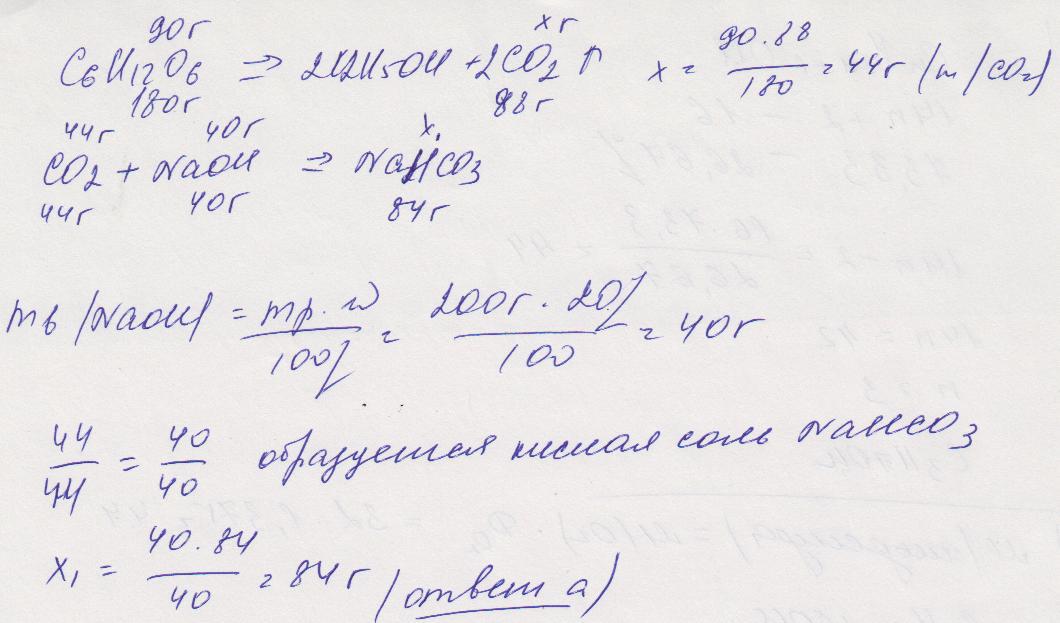 90г xг
C6H12O6 ⇒ 2C2H5OH + 2CO2 ↑ x = 90·88 / 180 = 44г (m(CO2)
180г 88г
44г 40г x1
CO2 + NaOH ⇒ NaHCO3
44г 40г 84г
mв (NaOH) = mр·w / 100% = 200г·20% / 100 = 40г
44/44 = 40/40 образуется кислая соль NaHCO3
x1 = 40·84 / 40 = 84г (ответ а)